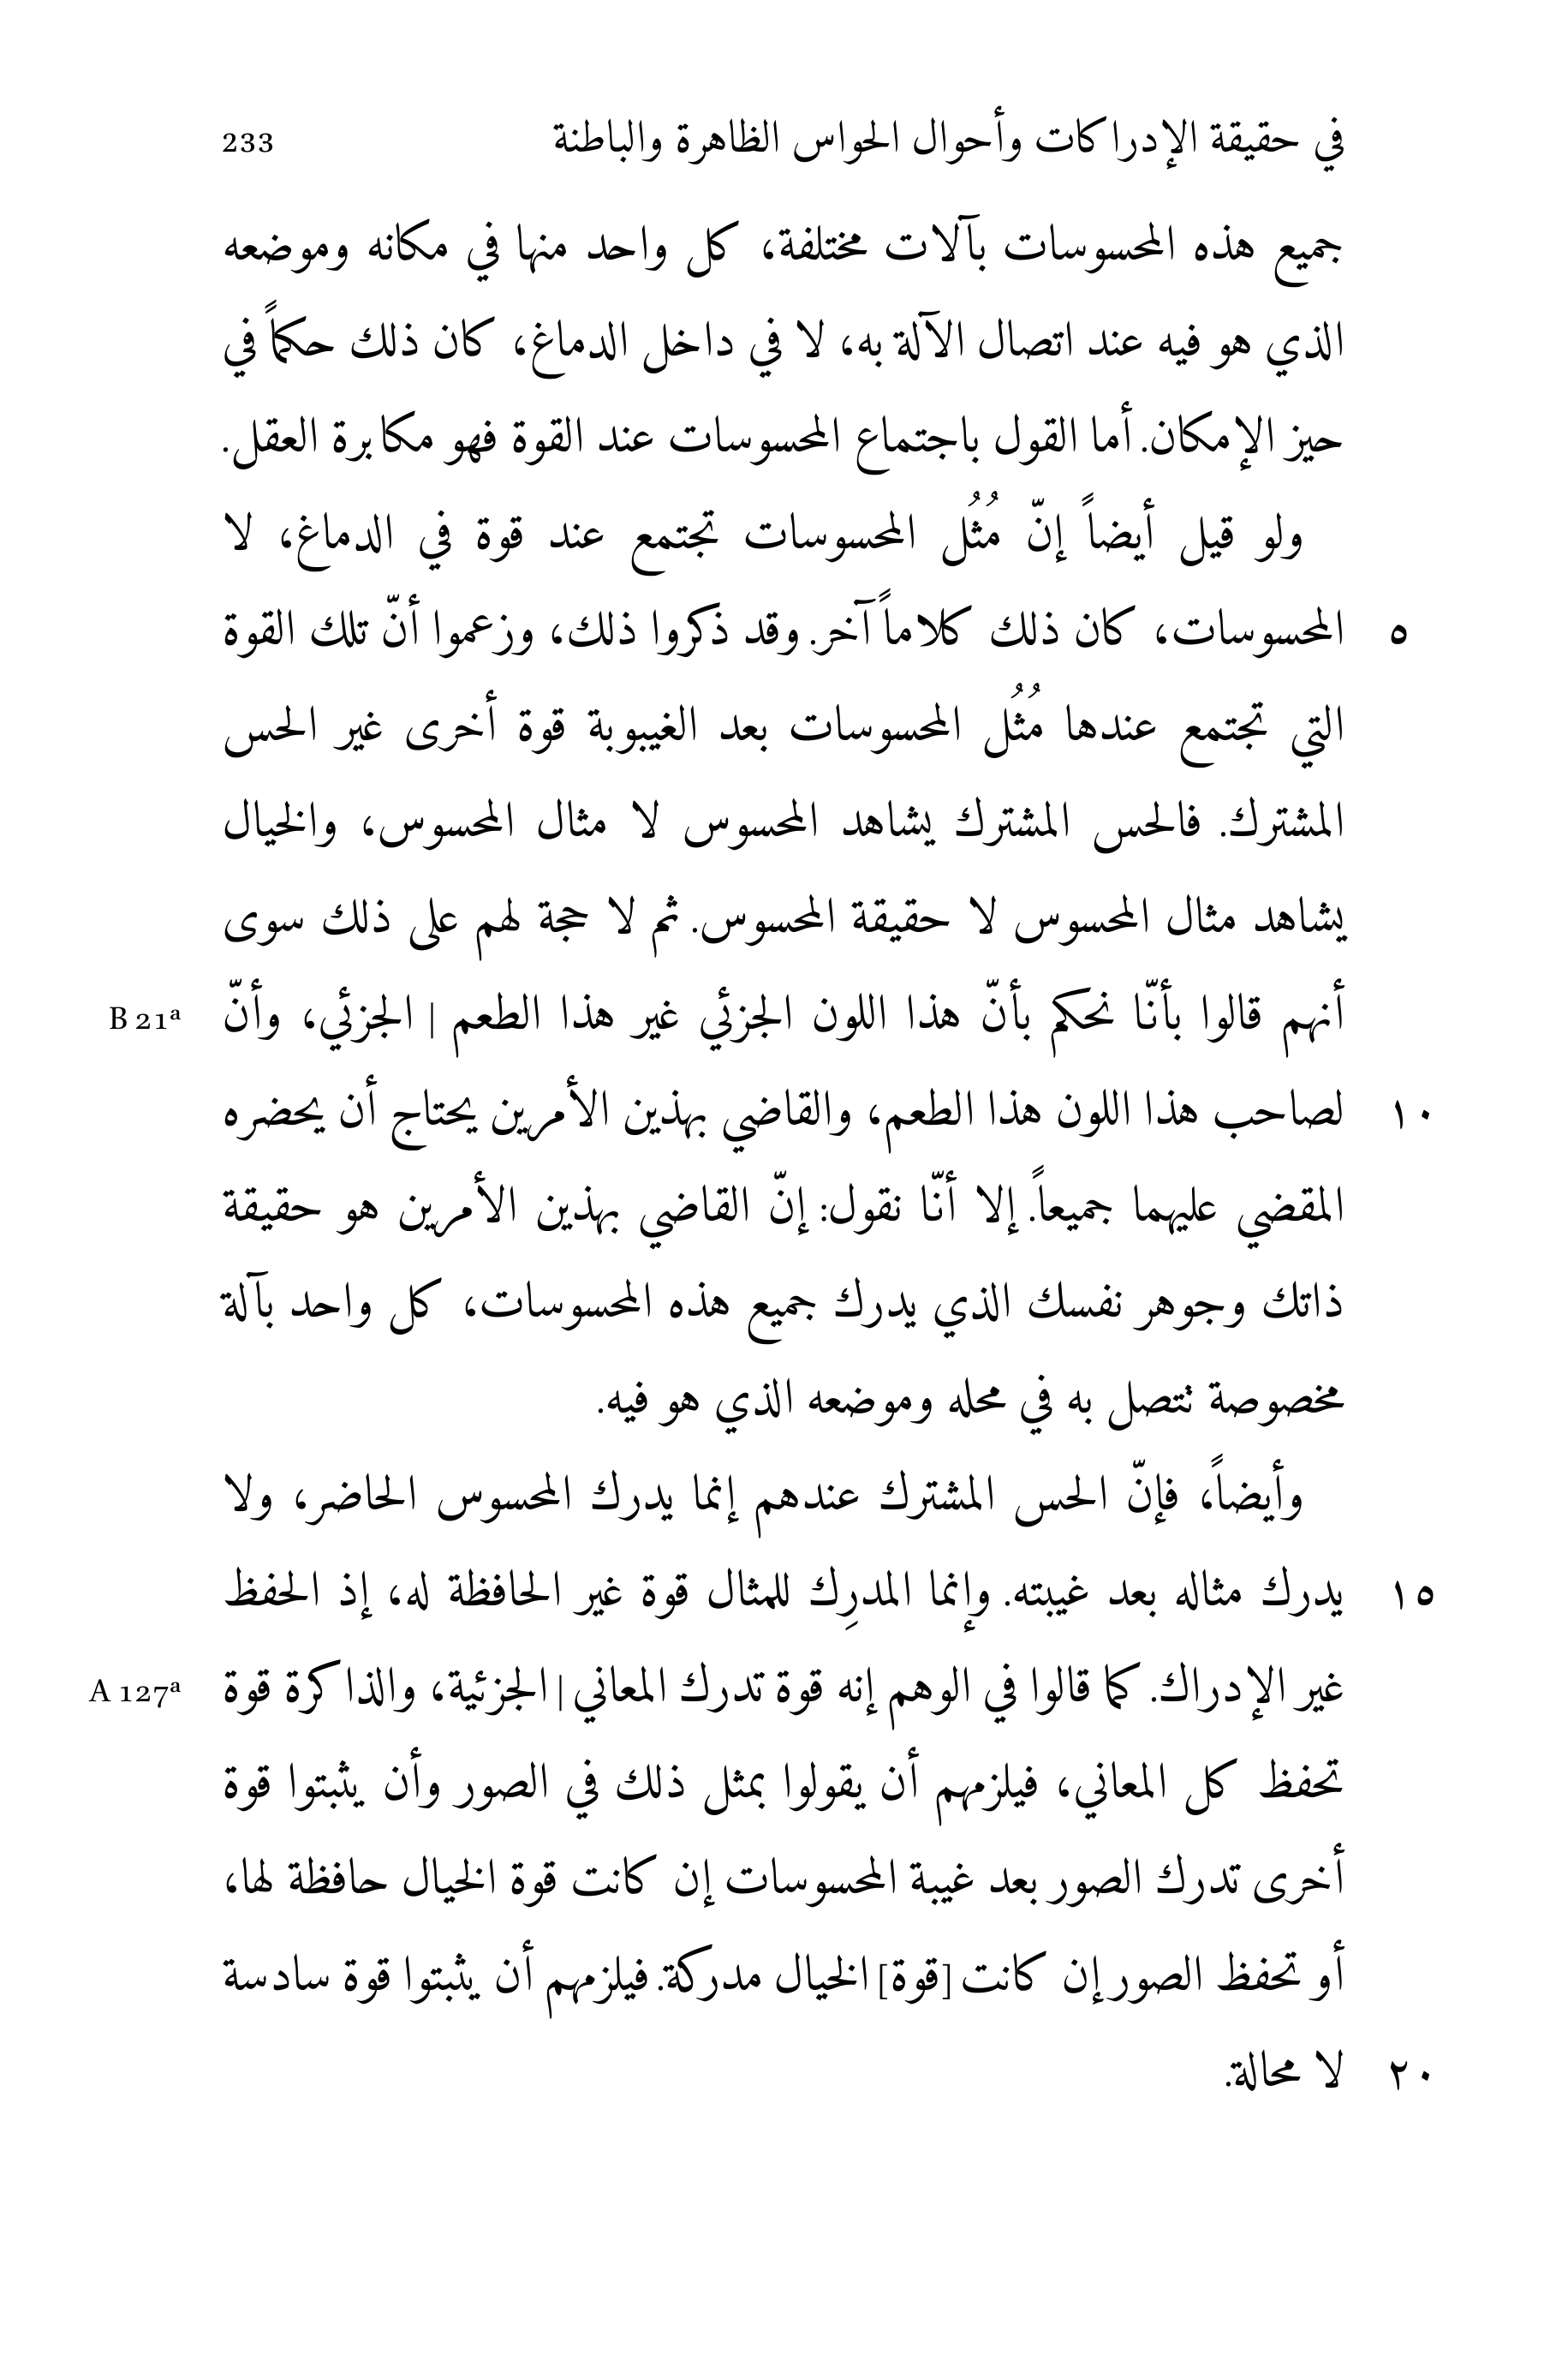 في حقيقة الإدراكات وأحوال الحواس الظاهرة والباطنة 233
جميع هذه المحسوسات بآلات مختلفة، كل واحد منها في مكانه وموضعه
الذي هو فيه عند اتصال الآلة به، لا في داخل الدماغ، كان ذلك حكماً في
حيز الإمكان. أما القول باجتماع المحسوسات عند القوة فهو مكابرة العقل.
ولو قيل أيضاً إنّ مُثُل المحسوسات تجتمع عند قوة في الدماغ، لا
٥ المحسوسات، كان ذلك كلاماً آخر. وقد ذكروا ذلك، وزعموا أنّ تلك القوة
التي تجتمع عندها مُثُل المحسوسات بعد الغيبوبة قوة أخرى غير الحس
المشترك. فالحس المشترك يشاهد المحسوس لا مثال المحسوس، والخيال
يشاهد مثال المحسوس لا حقيقة المحسوس. ثم لا حجة لهم على ذلك سوى
أنهم قالوا بأنّا نحكم بأنّ هذا اللون الجزئي غير هذا الطعم | الجزئي، وأنّ B 21ᵃ
١٠ لصاحب هذا اللون هذا الطعم، والقاضي بهذين الأمرين يحتاج أن يحضره
المقضي عليهما جميعاً. إلا أنّا نقول: إنّ القاضي بهذين الأمرين هو حقيقة
ذاتك وجوهر نفسك الذي يدرك جميع هذه المحسوسات، كل واحد بآلة
مخصوصة تتصل به في محله وموضعه الذي هو فيه.
وأيضاً، فإنّ الحس المشترك عندهم إنما يدرك المحسوس الحاضر، ولا
١٥ يدرك مثاله بعد غيبته. وإنما المدرِك للمثال قوة غير الحافظة له، إذ الحفظ
غير الإدراك. كما قالوا في الوهم إنه قوة تدرك المعاني | الجزئية، والذاكرة قوة A 127ᵃ
تحفظ كل المعاني، فيلزمهم أن يقولوا بمثل ذلك في الصور وأن يثبتوا قوة
أخرى تدرك الصور بعد غيبة المحسوسات إن كانت قوة الخيال حافظة لها،
أو تحفظ الصور إن كانت [قوة] الخيال مدركة. فيلزمهم أن يثبتوا قوة سادسة
٢٠ لا محالة.